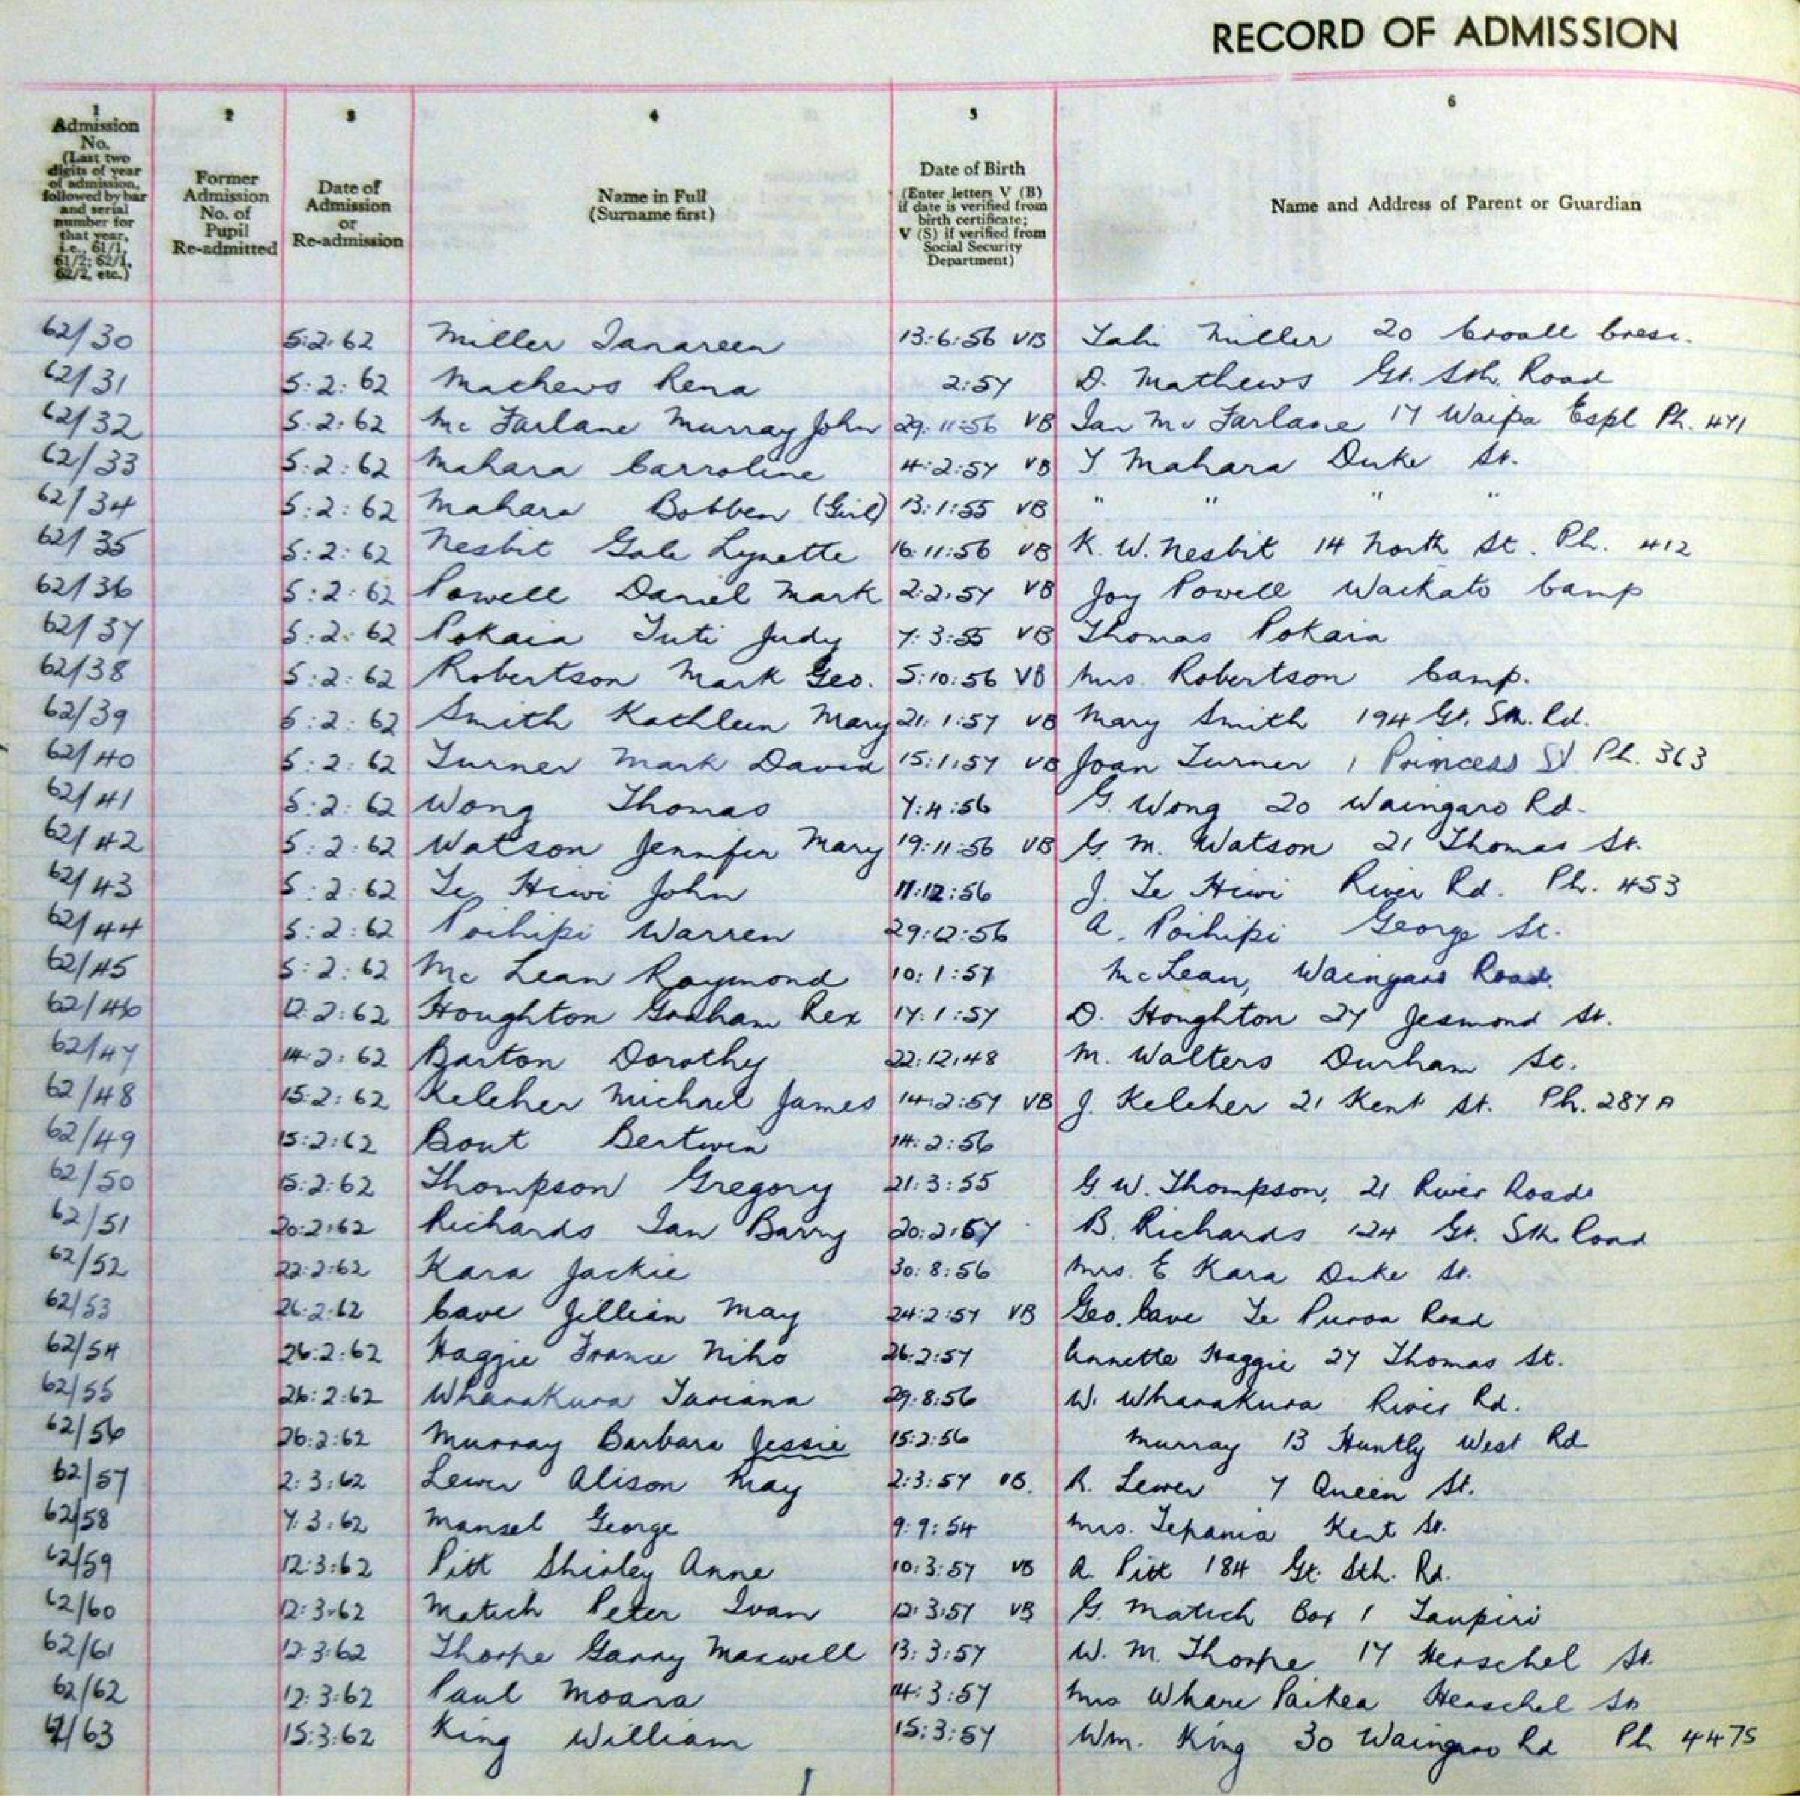 RECORD OF ADMISSION
1 2 3 4 5 6
Admission
No.
(Last two
digits of year
of admission,
followed by bar
and serial
number for
that year,
i.e., 61/1,
61/2; 62/1,
62/2, etc.)
Former
Admission
No. of
Pupil
Re-admitted
Date of
Admission
or
Re-admission
Name in Full
(Surname first)
Date of Birth
(Enter letters V (B)
if date is verified from
birth certificate;
V (S) if verified from
Social Security
Department)
Name and Address of Parent or Guardian
62/30 5:2:62 Miller Janareen 13:6:56 VB Tahi Miller 20 Croall Cresc.
62/31 5:2:62 Mathews Rena 2:57 D. Mathews Gt. Sth. Road
62/32 5:2:62 Mc Farlane Murray John 29:11:56 VB Ian Mc Farlane 17 Waipa Espl Ph. 471
62/33 5:2:62 Mahara Carroline 4:2:57 VB T Mahara Duke St.
62/34 5:2:62 Mahara Bobben (Girl) 13:1:55 VB " " " "
62/35 5:2:62 Nesbit Gale Lynette 16:11:56 VB K. W. Nesbit 14 North St. Ph. 412
62/36 5:2:62 Powell Daniel Mark 2:2:57 VB Joy Powell Waikato Camp
62/37 5:2:62 Pokaia Tuti Judy 7:3:55 VB Thomas Pokaia
62/38 5:2:62 Robertson Mark Geo. 5:10:56 VB Mrs. Robertson Camp.
62/39 5:2:62 Smith Kathleen Mary 21:1:57 VB Mary Smith 194 Gt. Sth. Rd.
62/40 5:2:62 Turner Mark David 15:1:57 VB Joan Turner 1 Princess St Ph. 363
62/41 5:2:62 Wong Thomas 7:4:56 G. Wong 20 Waingaro Rd.
62/42 5:2:62 Watson Jennifer Mary 19:11:56 VB G. M. Watson 21 Thomas St.
62/43 5:2:62 Te Hiwi John 11:12:56 J. Te Hiwi River Rd. Ph. 453
62/44 5:2:62 Poihipi Warren 29:12:56 A. Poihipi George St.
62/45 5:2:62 Mc Lean Raymond 10:1:57 McLean, Waingaro Road.
62/46 12:2:62 Houghton Graham Rex 17:1:57 D. Houghton 27 Jesmond St.
62/47 14:2:62 Barton Dorothy 22:12:48 M. Walters Durham St.
62/48 15:2:62 Keleher Michael James 14:2:57 VB J. Keleher 21 Kent St. Ph. 287A
62/49 15:2:62 Bout Bertwin 14:2:56
62/50 15:2:62 Thompson Gregory 21:3:55 G. W. Thompson, 21 River Road
62/51 20:2:62 Richards Ian Barry 20:2:57 B. Richards 124 Gt. Sth Road
62/52 22:2:62 Kara Jackie 30:8:56 Mrs. E Kara Duke St.
62/53 26:2:62 Cave Jillian May 24:2:57 VB Geo. Cave Te Puroa Road
62/54 26:2:62 Haggie France Niho 26:2:57 Annette Haggie 27 Thomas St.
62/55 26:2:62 Wharakura Tariana 29:8:56 W. Wharakura River Rd.
62/56 26:2:62 Murray Barbara Jessie 15:2:56 Murray 13 Huntly West Rd
62/57 2:3:62 Lewer Alison May 2:3:57 VB. R. Lewer 7 Queen St.
62/58 7:3:62 Mansel George 9:9:54 Mrs. Tepania Kent St.
62/59 12:3:62 Pitt Shirley Anne 10:3:57 VB A. Pitt 184 Gt. Sth. Rd.
62/60 12:3:62 Matich Peter Ivan 12:3:57 VB G. Matich Box 1 Taupiri
62/61 12:3:62 Thorpe Garry Maxwell 13:3:57 W. M. Thorpe 17 Herschel St.
62/62 12:3:62 Paul Moana 14:3:57 Mrs Whare Paikea Herschel St
62/63 15:3:62 King William 15:3:57 Wm. King 30 Waingaro Rd Ph 447S